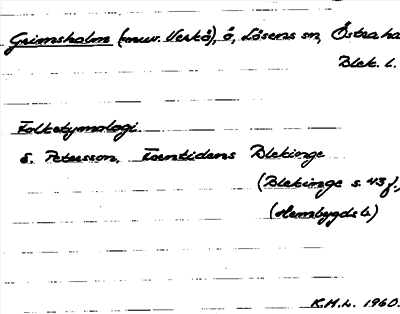 Grimsholm (nuv. Verkö), ö, Lösens sn, Östra ha
Blek. l.
Folketymologi.
S. Petersson, Forntidens Blekinge
(Blekinge s. 43 f.,
(Hembygdsb)
K.H.L. 1960.